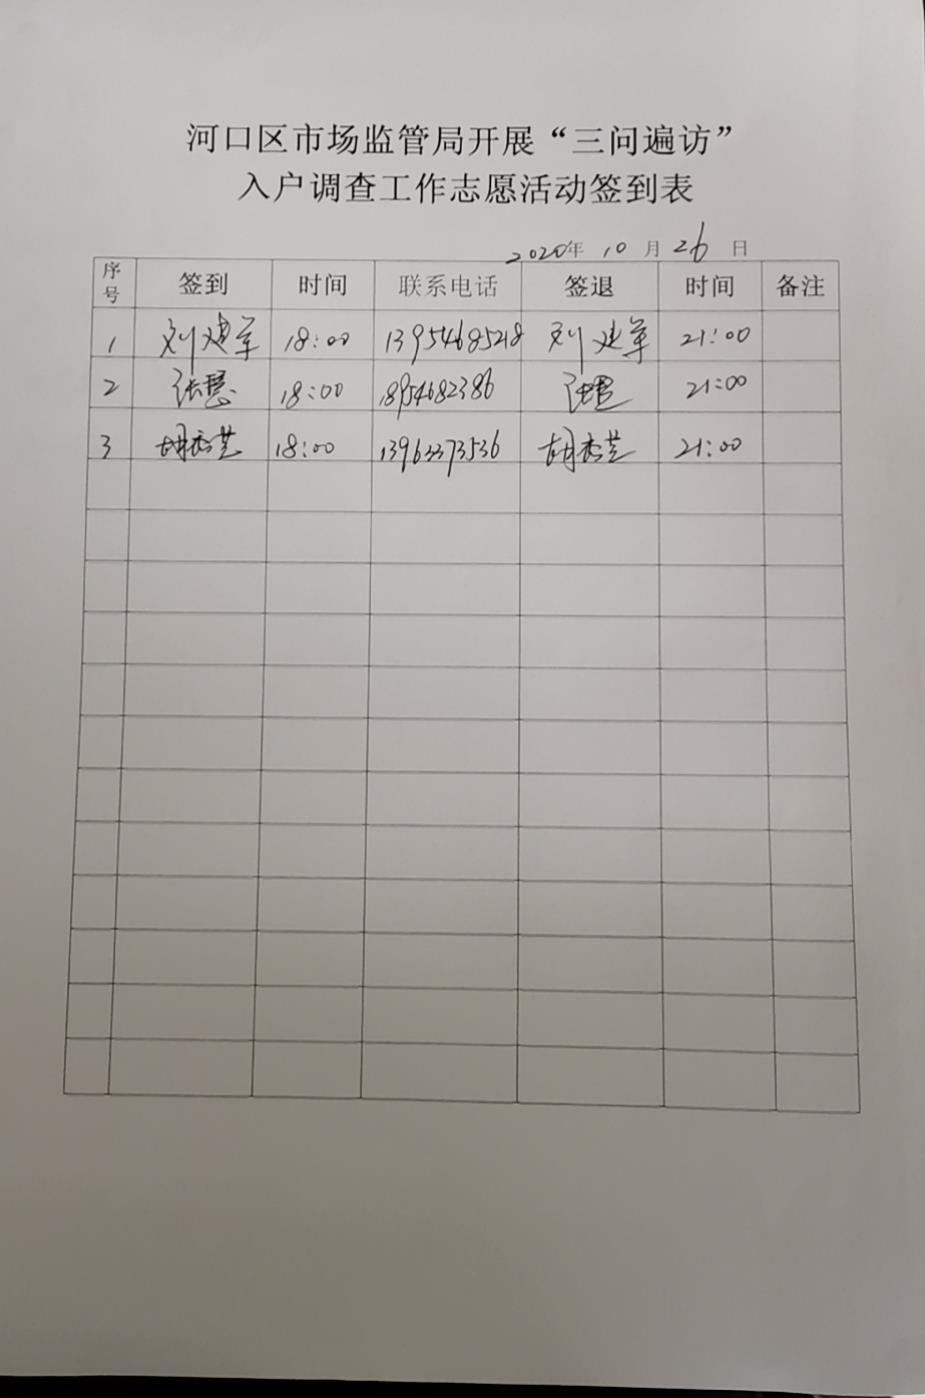 河口区市场监管局开展“三问遍访”
入户调查工作志愿活动签到表
2020年 10 月 26 日
序号 签到 时间 联系电话 签退 时间 备注
1 刘建军 18:00 13954685218 刘建军 21:00
2 张慧 18:00 18954682386 张慧 21:00
3 胡秀芝 18:00 13963373536 胡秀芝 21:00